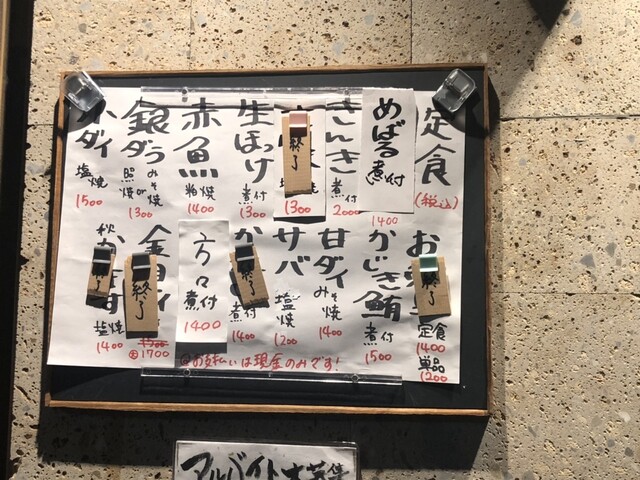 定食
(税込)
めばる
煮付
1400
きんき
煮付
2000
終了
1300
生ほっけ
煮付
1300
赤魚
粕焼
1400
銀ダラ
みそ焼
or
照焼
1300
ダイ
塩焼
1500
お
終了
定食
1400
単品
1200
かじき鮪
煮付
1500
甘ダイ
みそ焼
1400
サバ
塩焼
1200
か
終了
煮付
1400
方々
煮付
1400
金目ダイ
終了
1500
1700
終了
塩焼
1400
お支払いは現金のみです!
アルバイト大募集